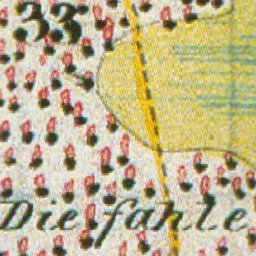 33
Die fahle